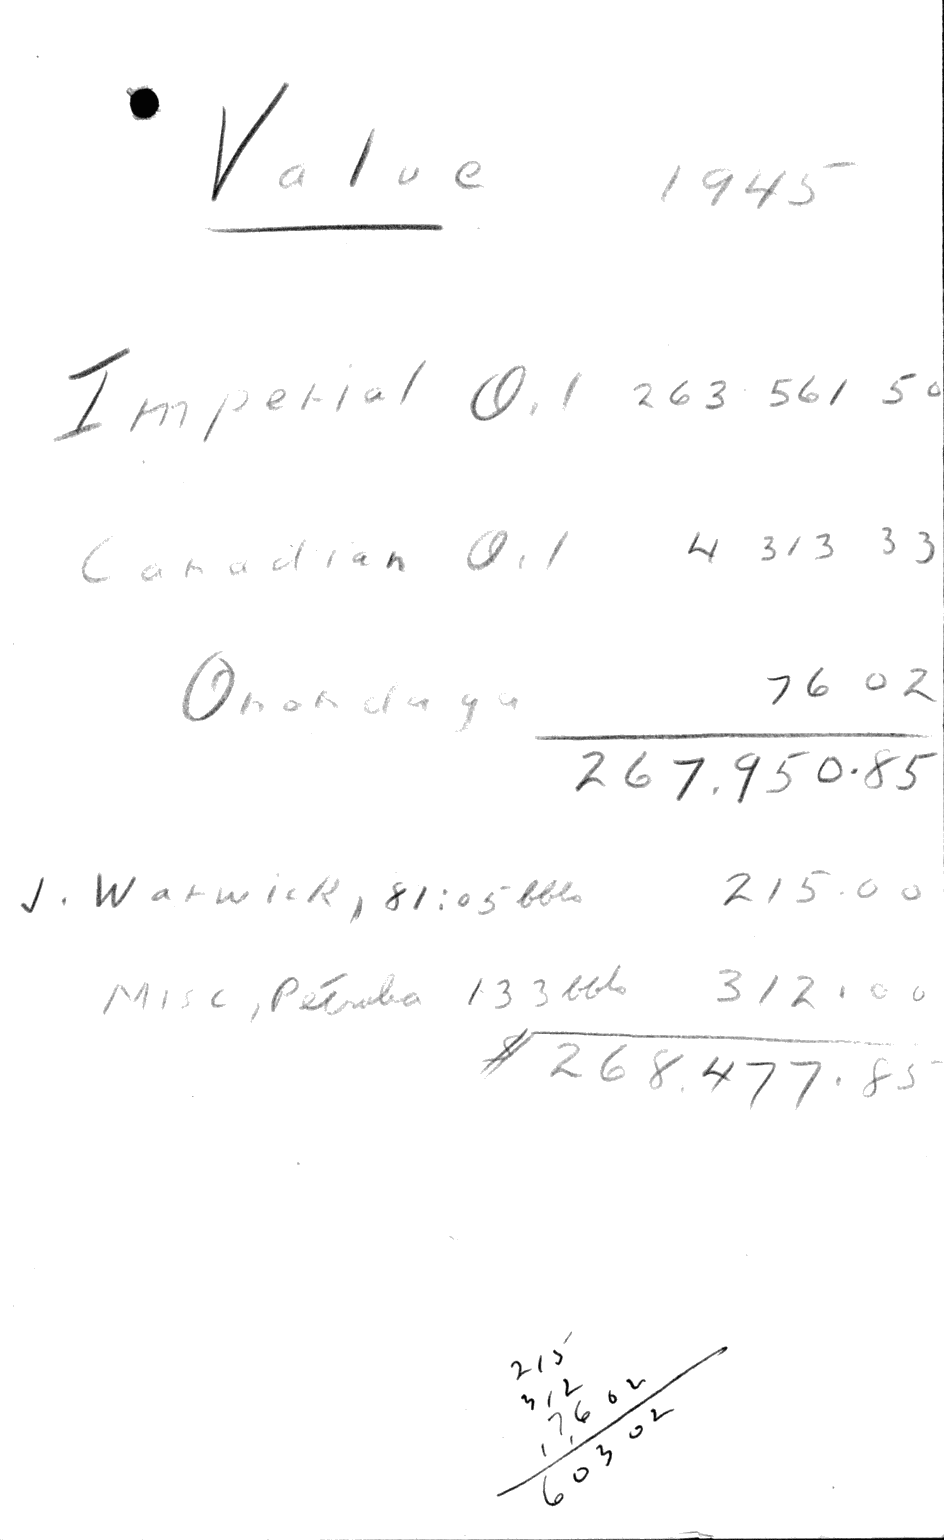 Value 1945
Imperial Oil 263 561 50
Canadian Oil 4 313 33
Onondaga 76 02
267.950.85
J. Warwick, 81:05 bbls 215.00
Misc, Petrolia 133 bbls 312.00
$ 268.477.85
215
312
76 02
603 02